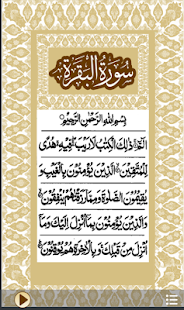 سُورَةُ الْبَقَرَةِ
بِسْمِ اللهِ الرَّحْمٰنِ الرَّحِيْمِ
الٓمّٓ ۚ ذٰلِكَ الْكِتٰبُ لَا رَيْبَ ۛ فِيْهِ ۛ هُدًى
لِّلْمُتَّقِيْنَ ۙ الَّذِيْنَ يُؤْمِنُوْنَ بِالْغَيْبِ وَ
يُقِيْمُوْنَ الصَّلٰوةَ وَمِمَّا رَزَقْنٰهُمْ يُنْفِقُوْنَ ۙ
وَالَّذِيْنَ يُؤْمِنُوْنَ بِمَاۤ اُنْزِلَ اِلَيْكَ وَمَاۤ
اُنْزِلَ مِنْ قَبْلِكَ ۚ وَبِالْاٰخِرَةِ هُمْ يُوْقِنُوْنَ ؕ